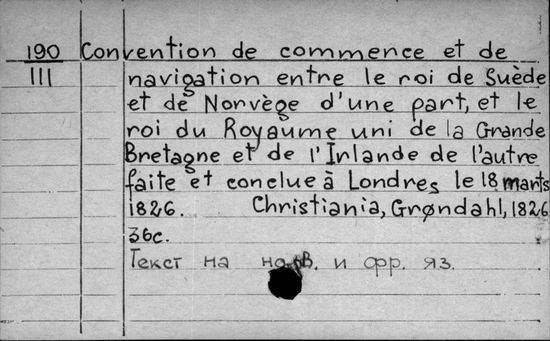 190 Convention de commence et de
III navigation entre le roi de Suède
et de Norvège d'une part, et le
roi du Royaume uni de la Grande
Bretagne et de l'Irlande de l'autre
faite et conclue à Londres le 18 marts
1826. Christiania, Grøndahl, 1826
36c.
Текст на норв. и фр. яз.